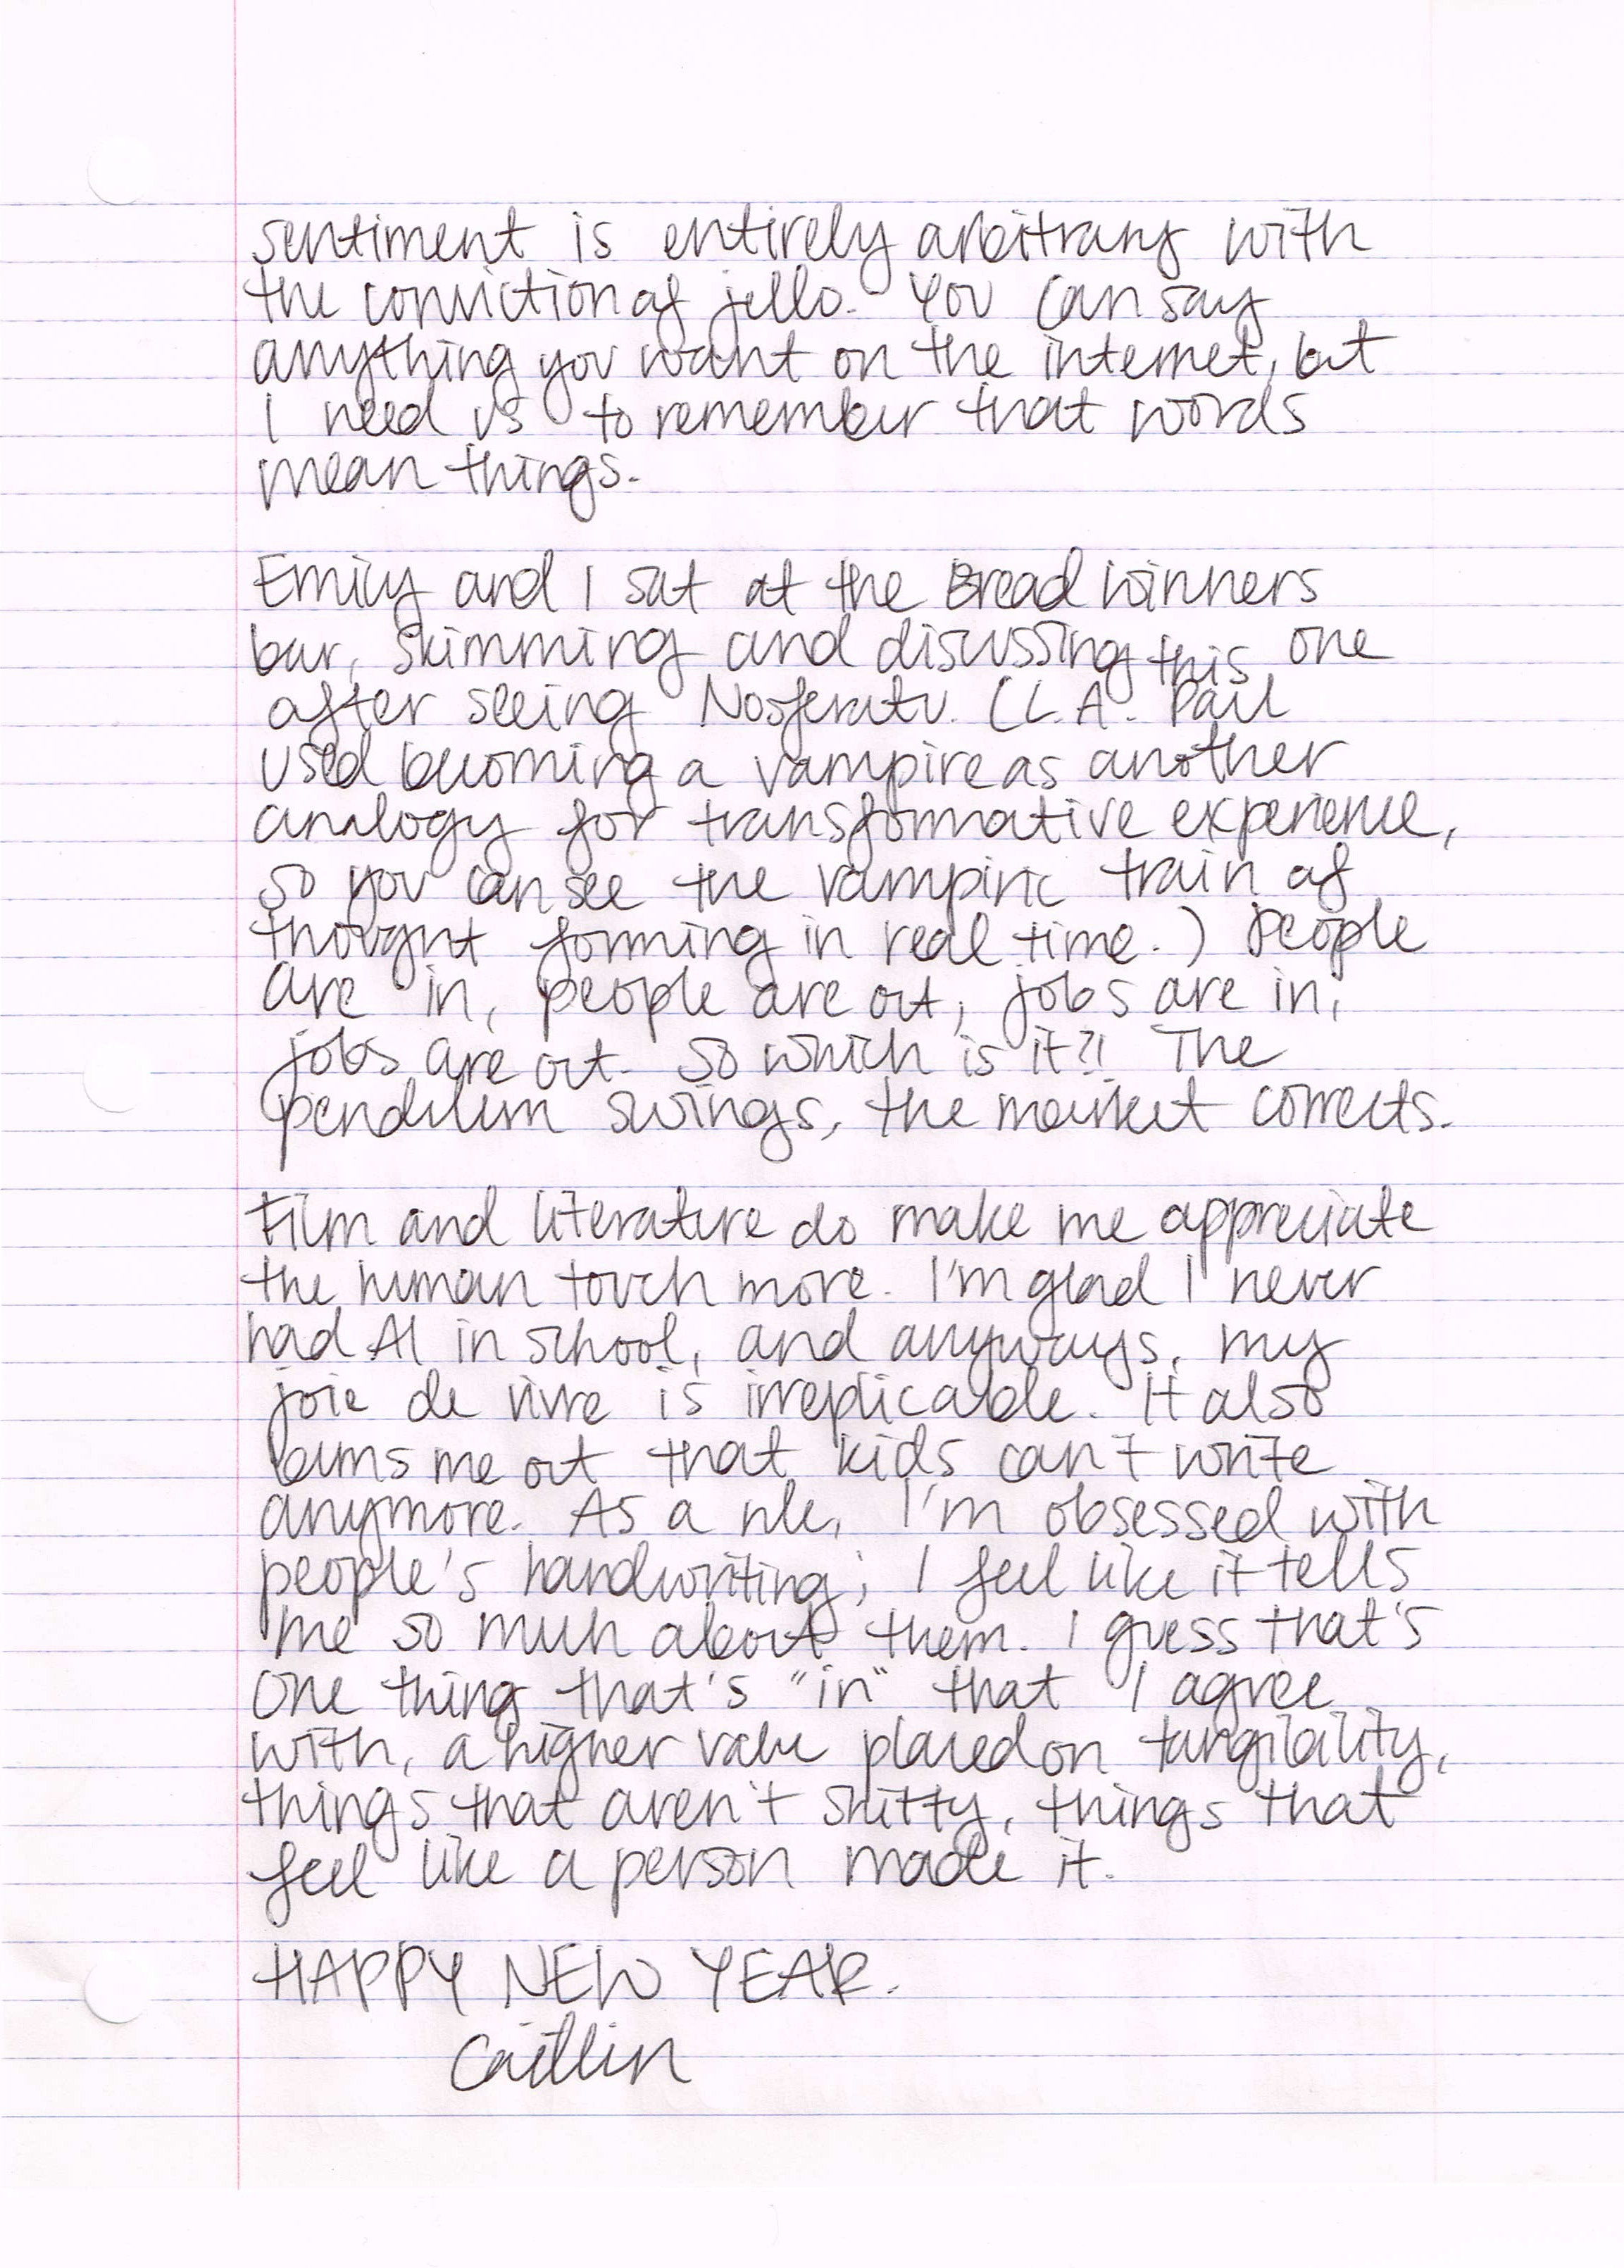 sentiment is entirely arbitrary with
the conviction of jello. You can say
anything you want on the internet, but
I need us to remember that words
mean things.
Emily and I sat at the Bread Winners
bar, skimming and discussing this one
after seeing Nosferatu. (L.A. Paul
used becoming a vampire as another
analogy for transformative experience,
so you can see the vampiric train of
thought forming in real time.) People
are in, people are out, jobs are in,
jobs are out. So which is it?! The
pendulum swings, the market corrects.
Film and literature do make me appreciate
the human touch more. I'm glad I never
had AI in school, and anyways, my
joie de vivre is irreplicable. It also
bums me out that kids can't write
anymore. As a rule, I'm obsessed with
people's handwriting; I feel like it tells
me so much about them. I guess that's
one thing that's "in" that I agree
with, a higher value placed on tangibility,
things that aren't shitty, things that
feel like a person made it.
HAPPY NEW YEAR.
Caitlin